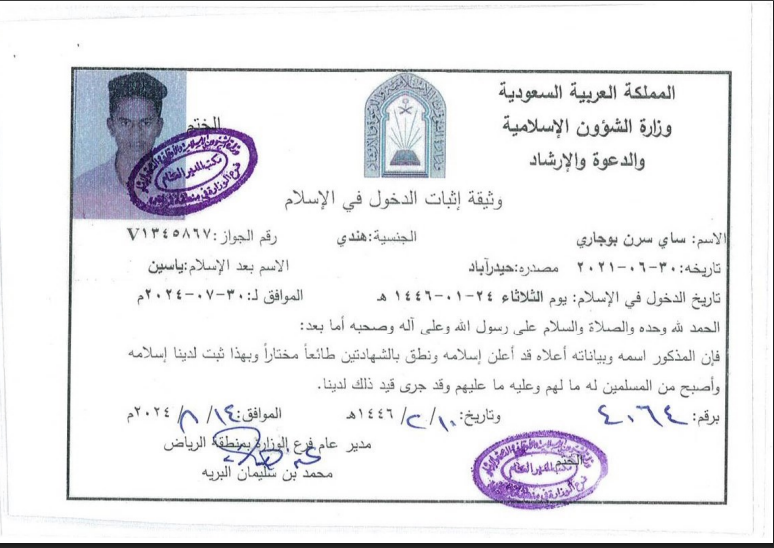 المملكة العربية السعودية
وزارة الشؤون الإسلامية
والدعوة والإرشاد
الختم
وثيقة إثبات الدخول في الإسلام
الاسم: ساي سرن بوجاري الجنسية:هندي رقم الجواز:V١٣٤٥٨٦٧
تاريخه:٣٠-٠٦-٢٠٢١ مصدره:حيدرآباد الاسم بعد الإسلام:ياسين
تاريخ الدخول في الإسلام: يوم الثلاثاء ٢٤-٠١-١٤٤٦ هـ الموافق لـ:٣٠-٠٧-٢٠٢٤م
الحمد لله وحده والصلاة والسلام على رسول الله وعلى آله وصحبه أما بعد:
فإن المذكور اسمه وبياناته أعلاه قد أعلن إسلامه ونطق بالشهادتين طائعاً مختاراً وبهذا ثبت لدينا إسلامه
وأصبح من المسلمين له ما لهم وعليه ما عليهم وقد جرى قيد ذلك لدينا.
برقم: ٤٠٦٤ وتاريخ: ١٠/ ٢/ ١٤٤٦هـ الموافق: ١٤/ ٨/ ٢٠٢٤م
مدير عام فرع الوزارة بمنطقة الرياض
محمد بن سليمان البريه
الختم
مكتب المدير العام